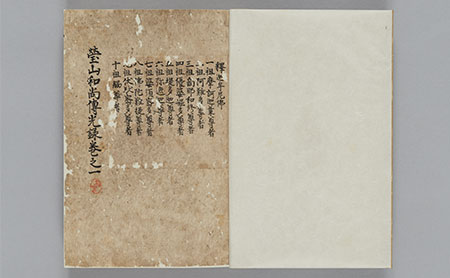 釋迦牟尼佛
一祖摩訶迦葉尊者
二祖阿難多尊者
三祖商那和修尊者
四祖優婆毱多尊者
五祖提多迦尊者
六祖弥遮迦尊者
七祖婆須密多尊者
八祖佛陀難提尊者
九祖伏駄密多尊者
十祖脇尊者
瑩山和尚傳光録巻之一